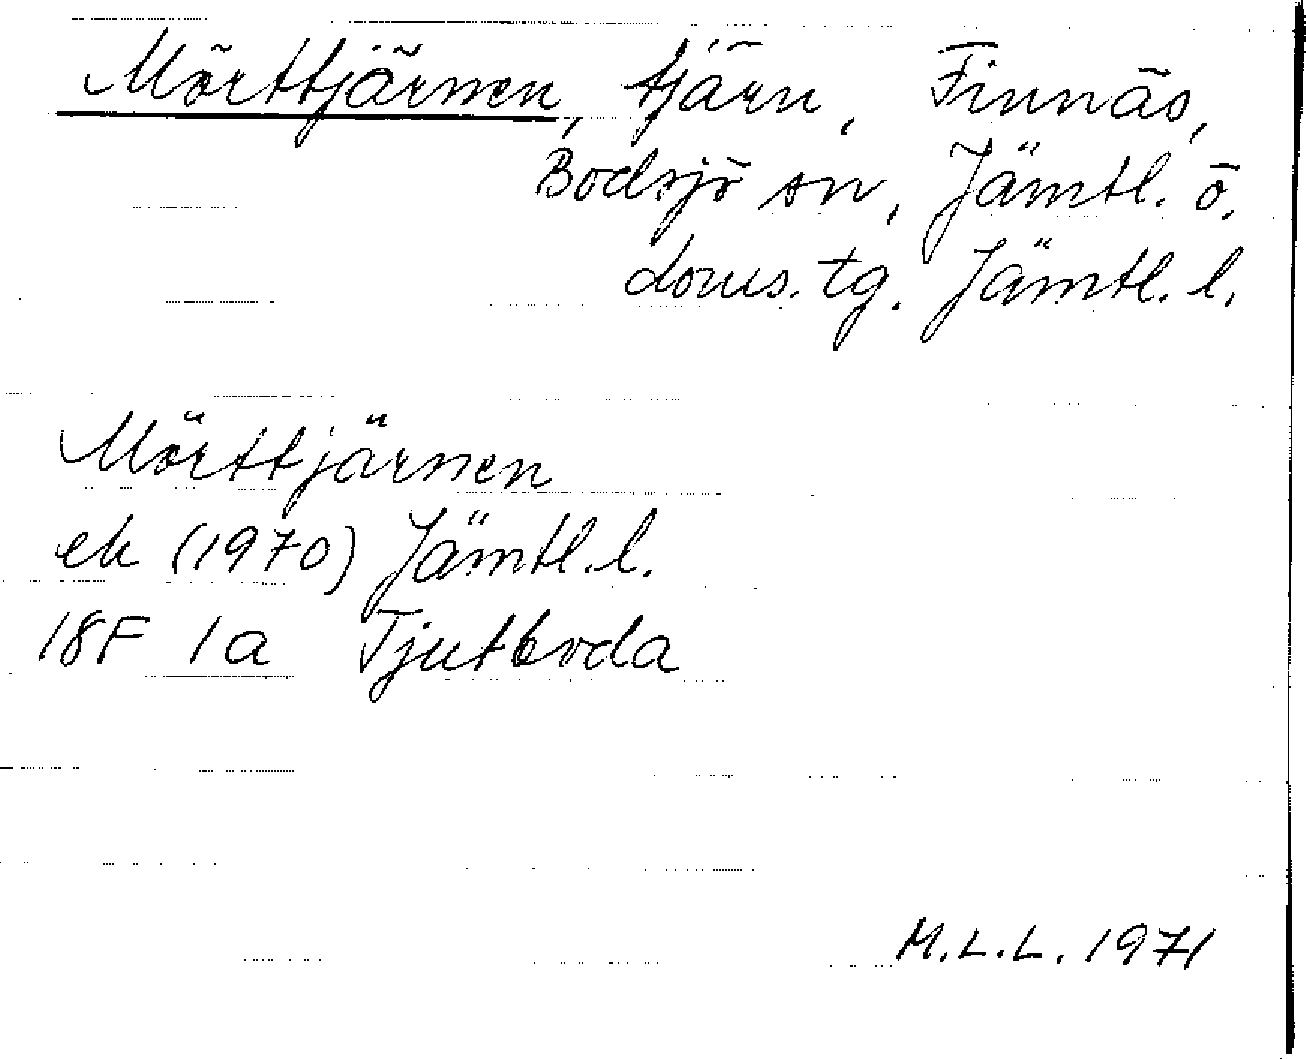 Mörttjärnen, tjärn, Finnäs,
Bodsjö sn, Jämtl. ö.
doms. tg. Jämtl. l.
Mörttjärnen
ek (1970) Jämtl. l.
18F 1a Tjutboda
M.L.L. 1971